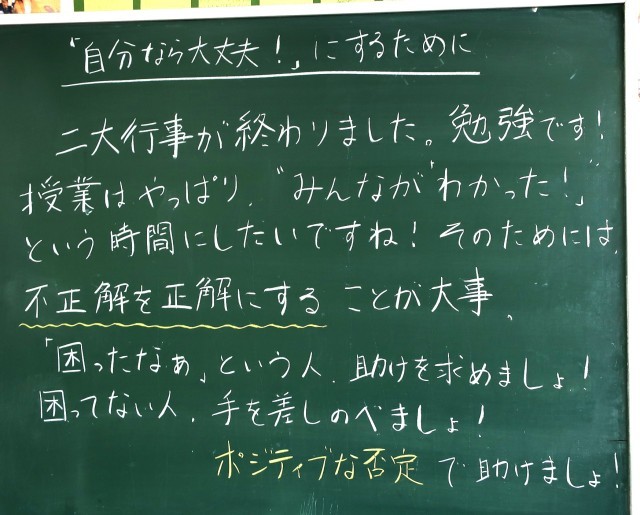 「自分なら大丈夫！」にするために
二大行事が終わりました。勉強です！
授業はやっぱり、“みんなが「わかった！」”
という時間にしたいですね！そのためには、
不正解を正解にすることが大事、
「困ったなぁ」という人、助けを求めましょ！
困ってない人、手を差しのべましょ！
ポジティブな否定で助けましょ！